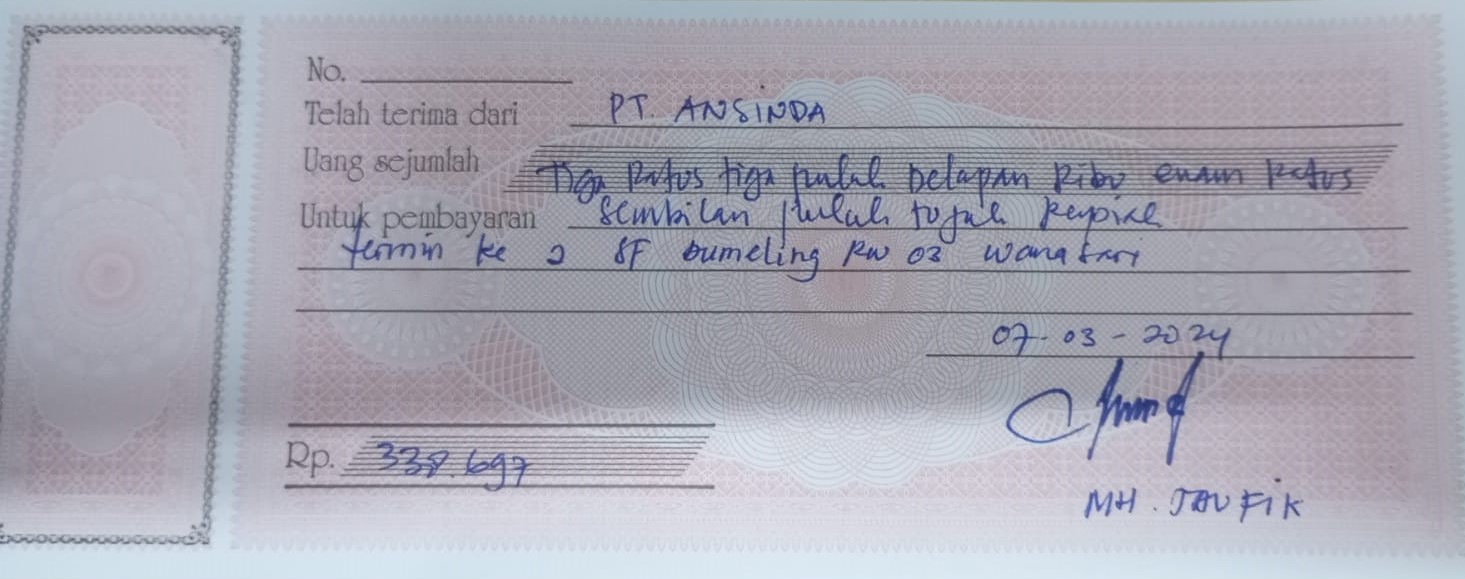 No.
Telah terima dari PT. ANSINDA
Uang sejumlah Tiga Ratus tiga puluh Delapan Ribu enam Ratus
Untuk pembayaran sembilan puluh tujuh Rupiah
termin ke 2 SF bumeling RW 03 wanasari
07-03-2024
Rp. 338.697
MH. TAUFIK